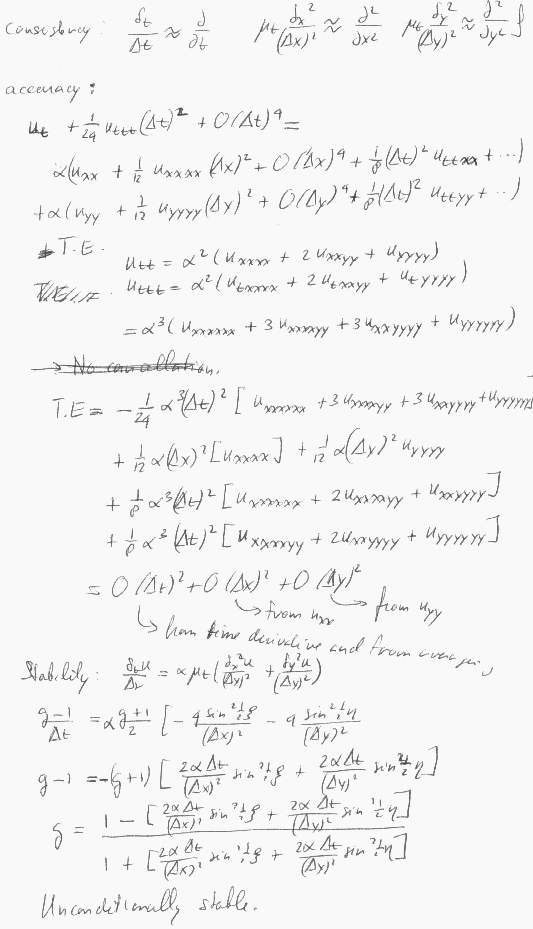 Consistency: δ_t/Δt ≈ ∂/∂t   μ_t δ_x²/(Δx)² ≈ ∂²/∂x²   μ_t δ_y²/(Δy)² ≈ ∂²/∂y² }
accuracy:
u_t + 1/24 u_ttt (Δt)² + O(Δt)⁴ =
α(u_xx + 1/12 u_xxxx (Δx)² + O(Δx)⁴ + 1/8 (Δt)² u_ttxx + ...)
+ α(u_yy + 1/12 u_yyyy (Δy)² + O(Δy)⁴ + 1/8 (Δt)² u_ttyy + ...)
+ T.E.
u_tt = α² (u_xxxx + 2 u_xxyy + u_yyyy)
u_ttt = α² (u_txxxx + 2 u_txxyy + u_tyyyy)
= α³ (u_xxxxxx + 3 u_xxxxyy + 3 u_xxyyyy + u_yyyyyy)
→ No cancellation.
T.E = - 1/24 α³ (Δt)² [ u_xxxxxx + 3 u_xxxxyy + 3 u_xxyyyy + u_yyyyyy ]
+ 1/12 α (Δx)² [ u_xxxx ] + 1/12 α (Δy)² u_yyyy
+ 1/8 α³ (Δt)² [ u_xxxxxx + 2 u_xxxxyy + u_xxyyyy ]
+ 1/8 α³ (Δt)² [ u_xxxxyy + 2 u_xxyyyy + u_yyyyyy ]
= O(Δt)² + O(Δx)² + O(Δy)²
↳ from u_xx ↳ from u_yy
↳ from time derivative and from averaging
Stability: δ_t u/Δt = α μ_t ( δ_x² u/(Δx)² + δ_y² u/(Δy)² )
(g-1)/Δt = α (g+1)/2 [ - 4 sin² ½ξ/(Δx)² - 4 sin² ½η/(Δy)² ]
g-1 = -(g+1) [ 2αΔt/(Δx)² sin² ½ξ + 2αΔt/(Δy)² sin² ½η ]
g = (1 - [ 2αΔt/(Δx)² sin² ½ξ + 2αΔt/(Δy)² sin² ½η ]) / (1 + [ 2αΔt/(Δx)² sin² ½ξ + 2αΔt/(Δy)² sin² ½η ])
Unconditionally stable.